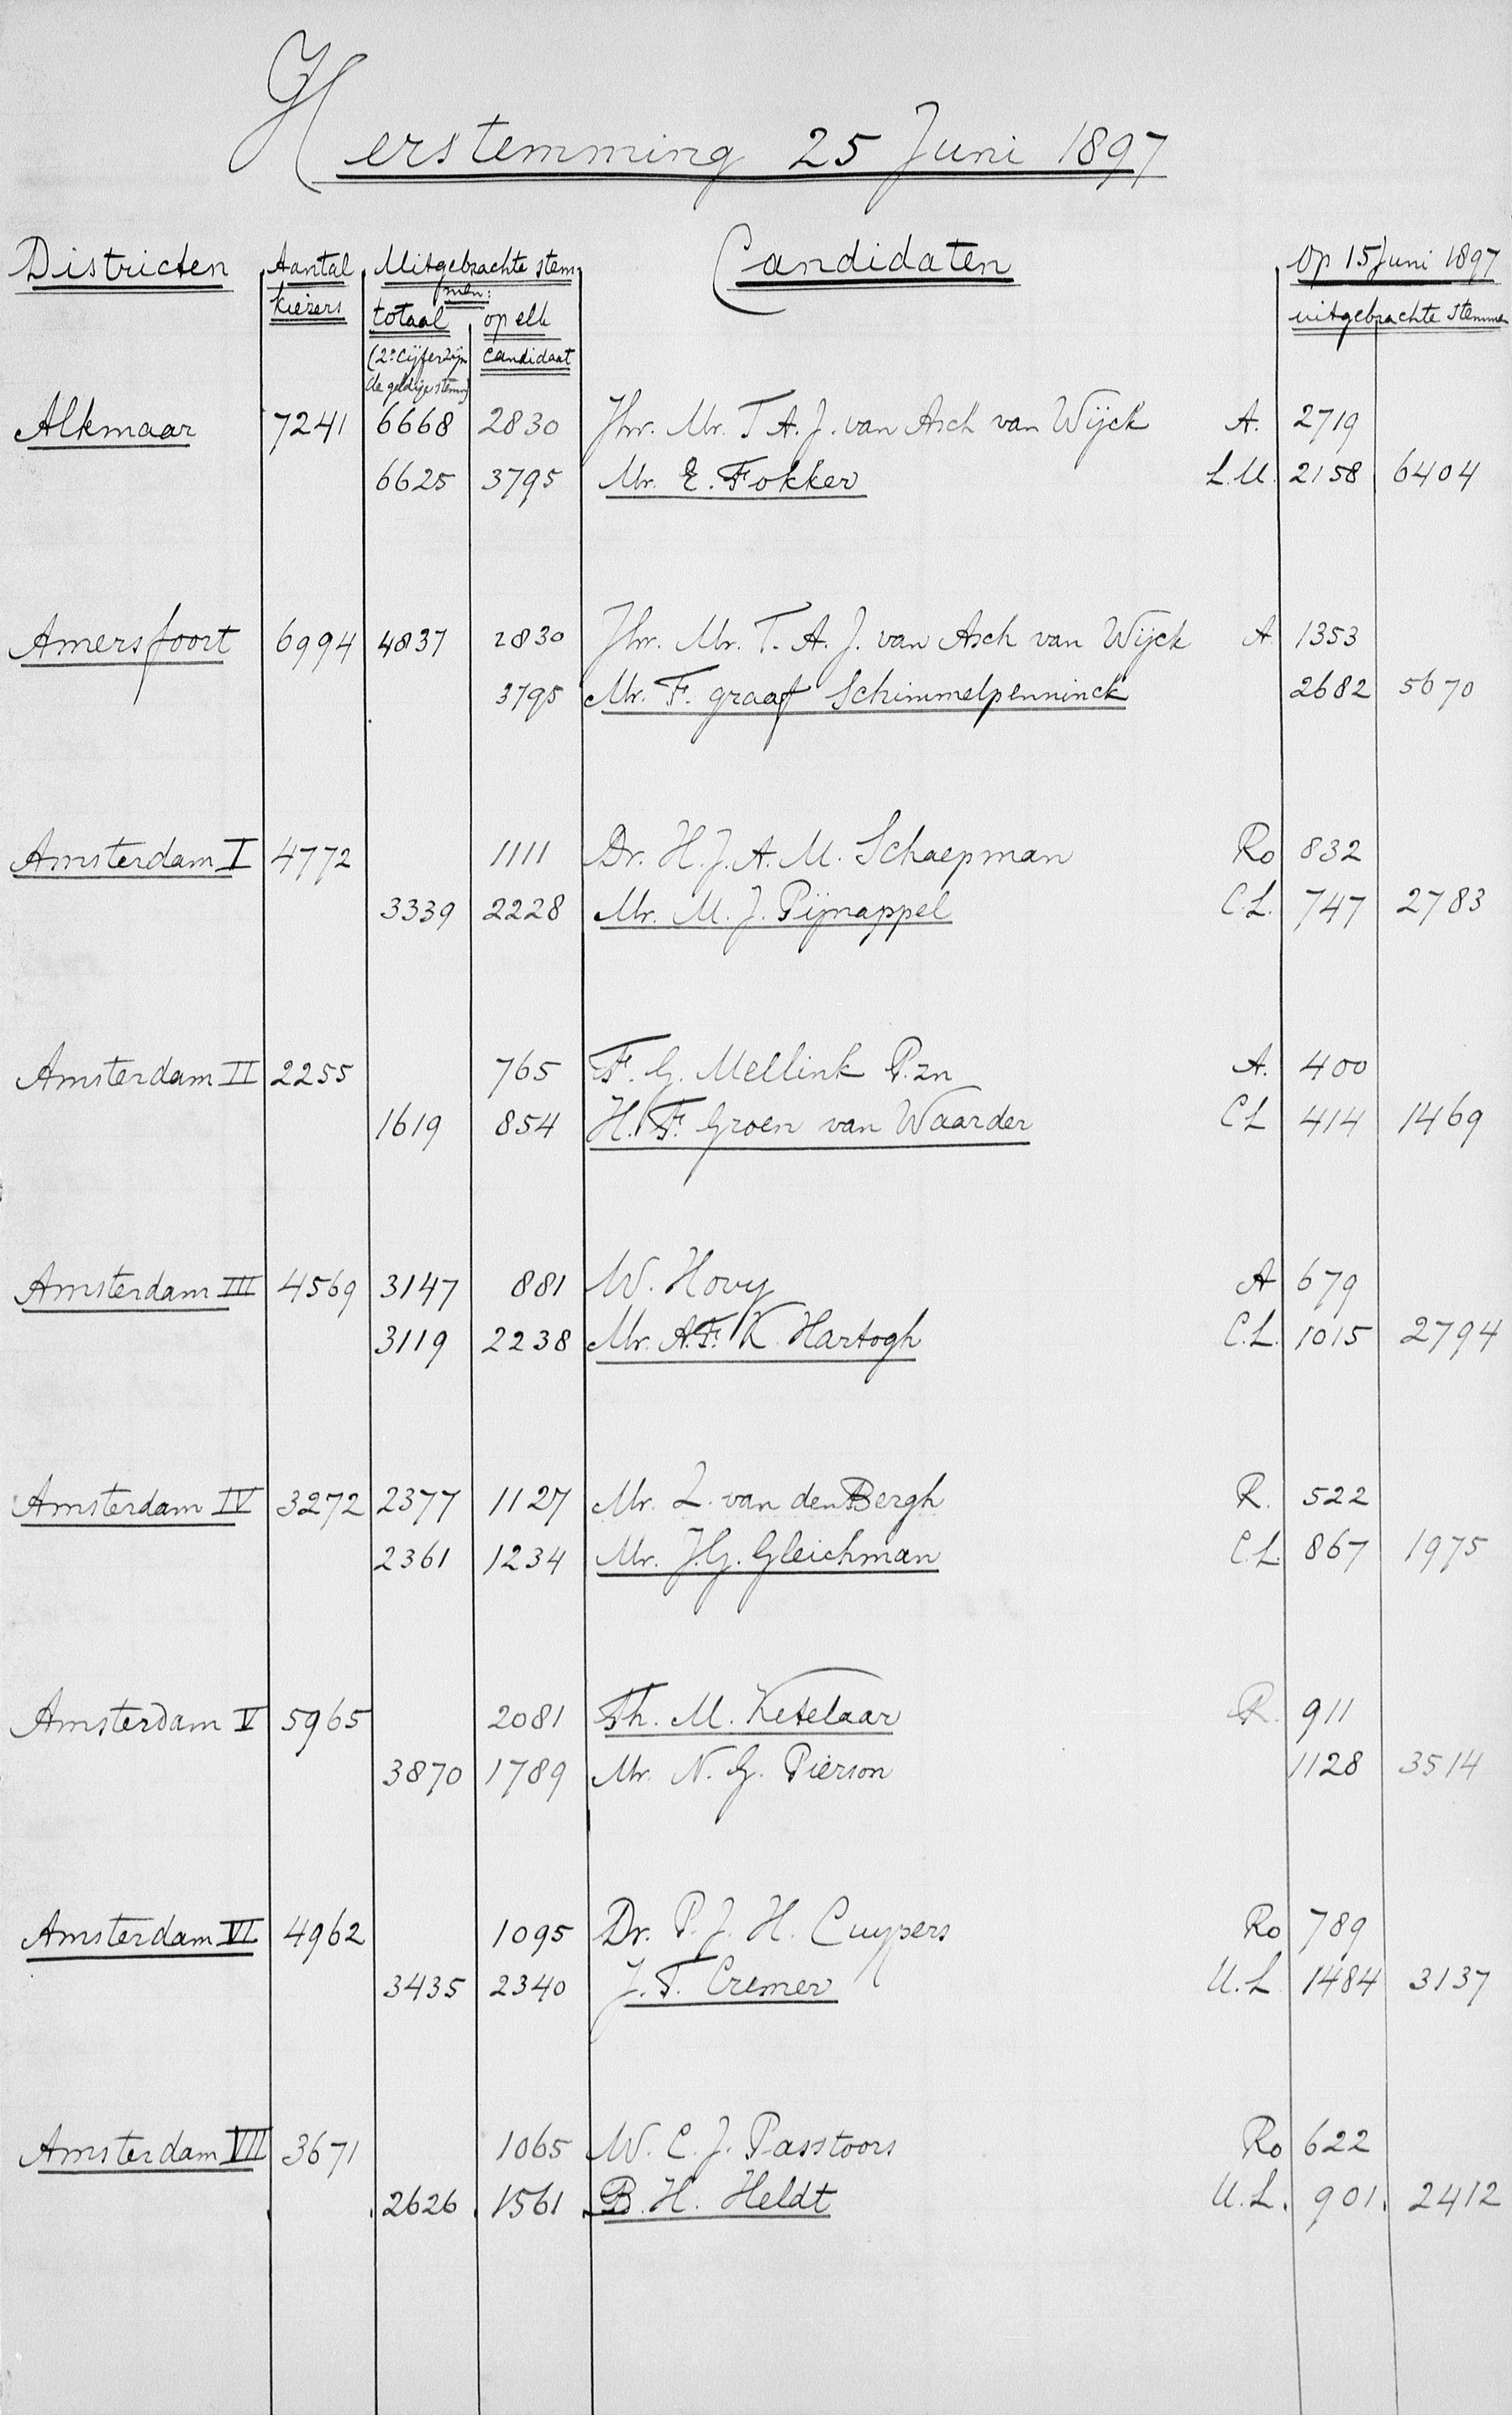 Herstemming 25 Juni 1897
Districten Aantal Uitgebrachte stem Candidaten Op 15 Juni 1897
men:
kiezers totaal op elk uitgebrachte stemmen
(2e cijfer zijn candidaat
de geldige stemm)
Alkmaar 7241 6668 2830 Jhr. Mr. T. A. J. van Asch van Wijck A. 2719
6625 3795 Mr. E. Fokker L.U. 2158 6404
Amersfoort 6994 4837 2830 Jhr. Mr. T. A. J. van Asch van Wijck A 1353
3795 Mr. F. graaf Schimmelpenninck 2682 5670
Amsterdam I 4772 1111 Dr. H. J. A. M. Schaepman Ro 832
3339 2228 Mr. M. J. Pijnappel C.L. 747 2783
Amsterdam II 2255 765 F. G. Mellink P.zn A. 400
1619 854 H. F. Groen van Waarder CL 414 1469
Amsterdam III 4569 3147 881 W. Hovy A 679
3119 2238 Mr. A. F. K. Hartogh C.L. 1015 2794
Amsterdam IV 3272 2377 1127 Mr. Z. van den Bergh R. 522
2361 1234 Mr. J. G. Gleichman C.L. 867 1975
Amsterdam V 5965 2081 Th. M. Ketelaar R. 911
3870 1789 Mr. N. G. Pierson 1128 3514
Amsterdam VI 4962 1095 Dr. P. J. H. Cuypers Ro 789
3435 2340 J. T. Cremer U.L. 1484 3137
Amsterdam VII 3671 1065 W. C. J. Passtoors Ro 622
2626 1561 B. H. Heldt U.L. 901 2412